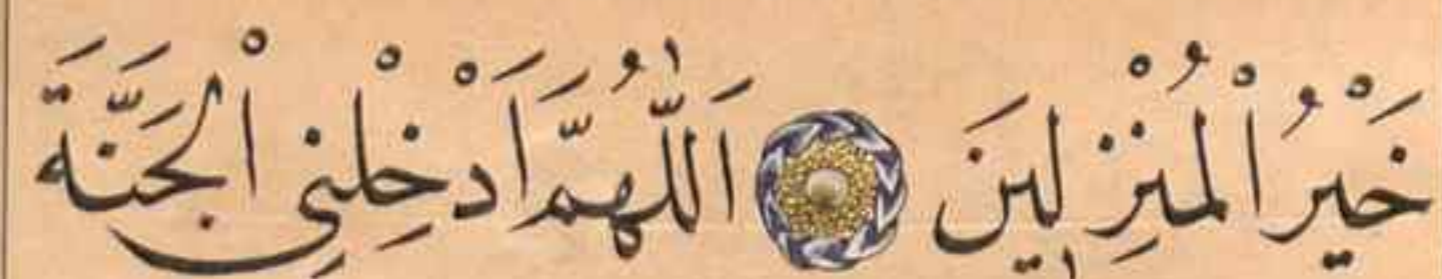 خَيْرُ الْمُنْزِلِينَ اَللّٰهُمَّ اَدْخِلْنِي الْجَنَّةَ